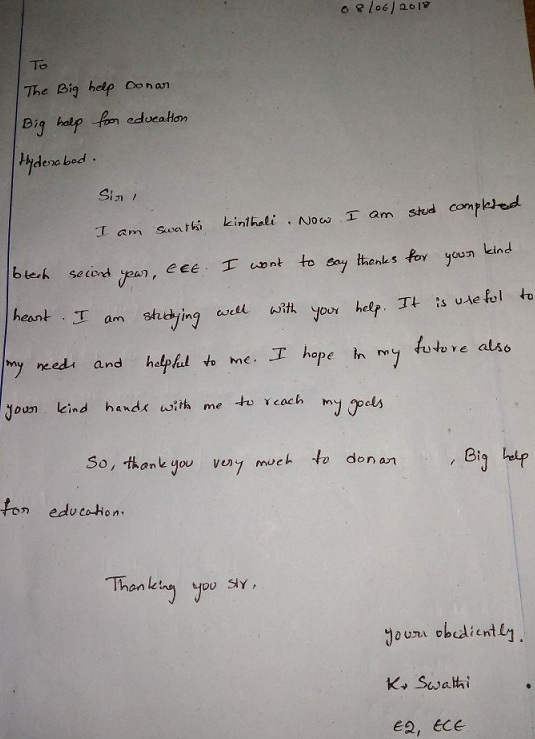 08/06/2018
To
The Big help Donar
Big help for education
Hyderabad.
Sir,
I am swathi kinthali. Now I am stud completed
btech second year, ECE. I want to say thanks for your kind
heart. I am studying well with your help. It is useful to
my needs and helpful to me. I hope in my future also
your kind hands with me to reach my goals
So, thank you very much to donar , Big help
for education.
Thanking you sir,
yours obediently.
K. Swathi
E2, ECE